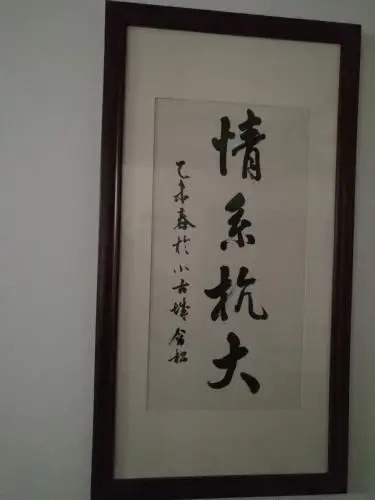 情系杭大
乙未春於小古城